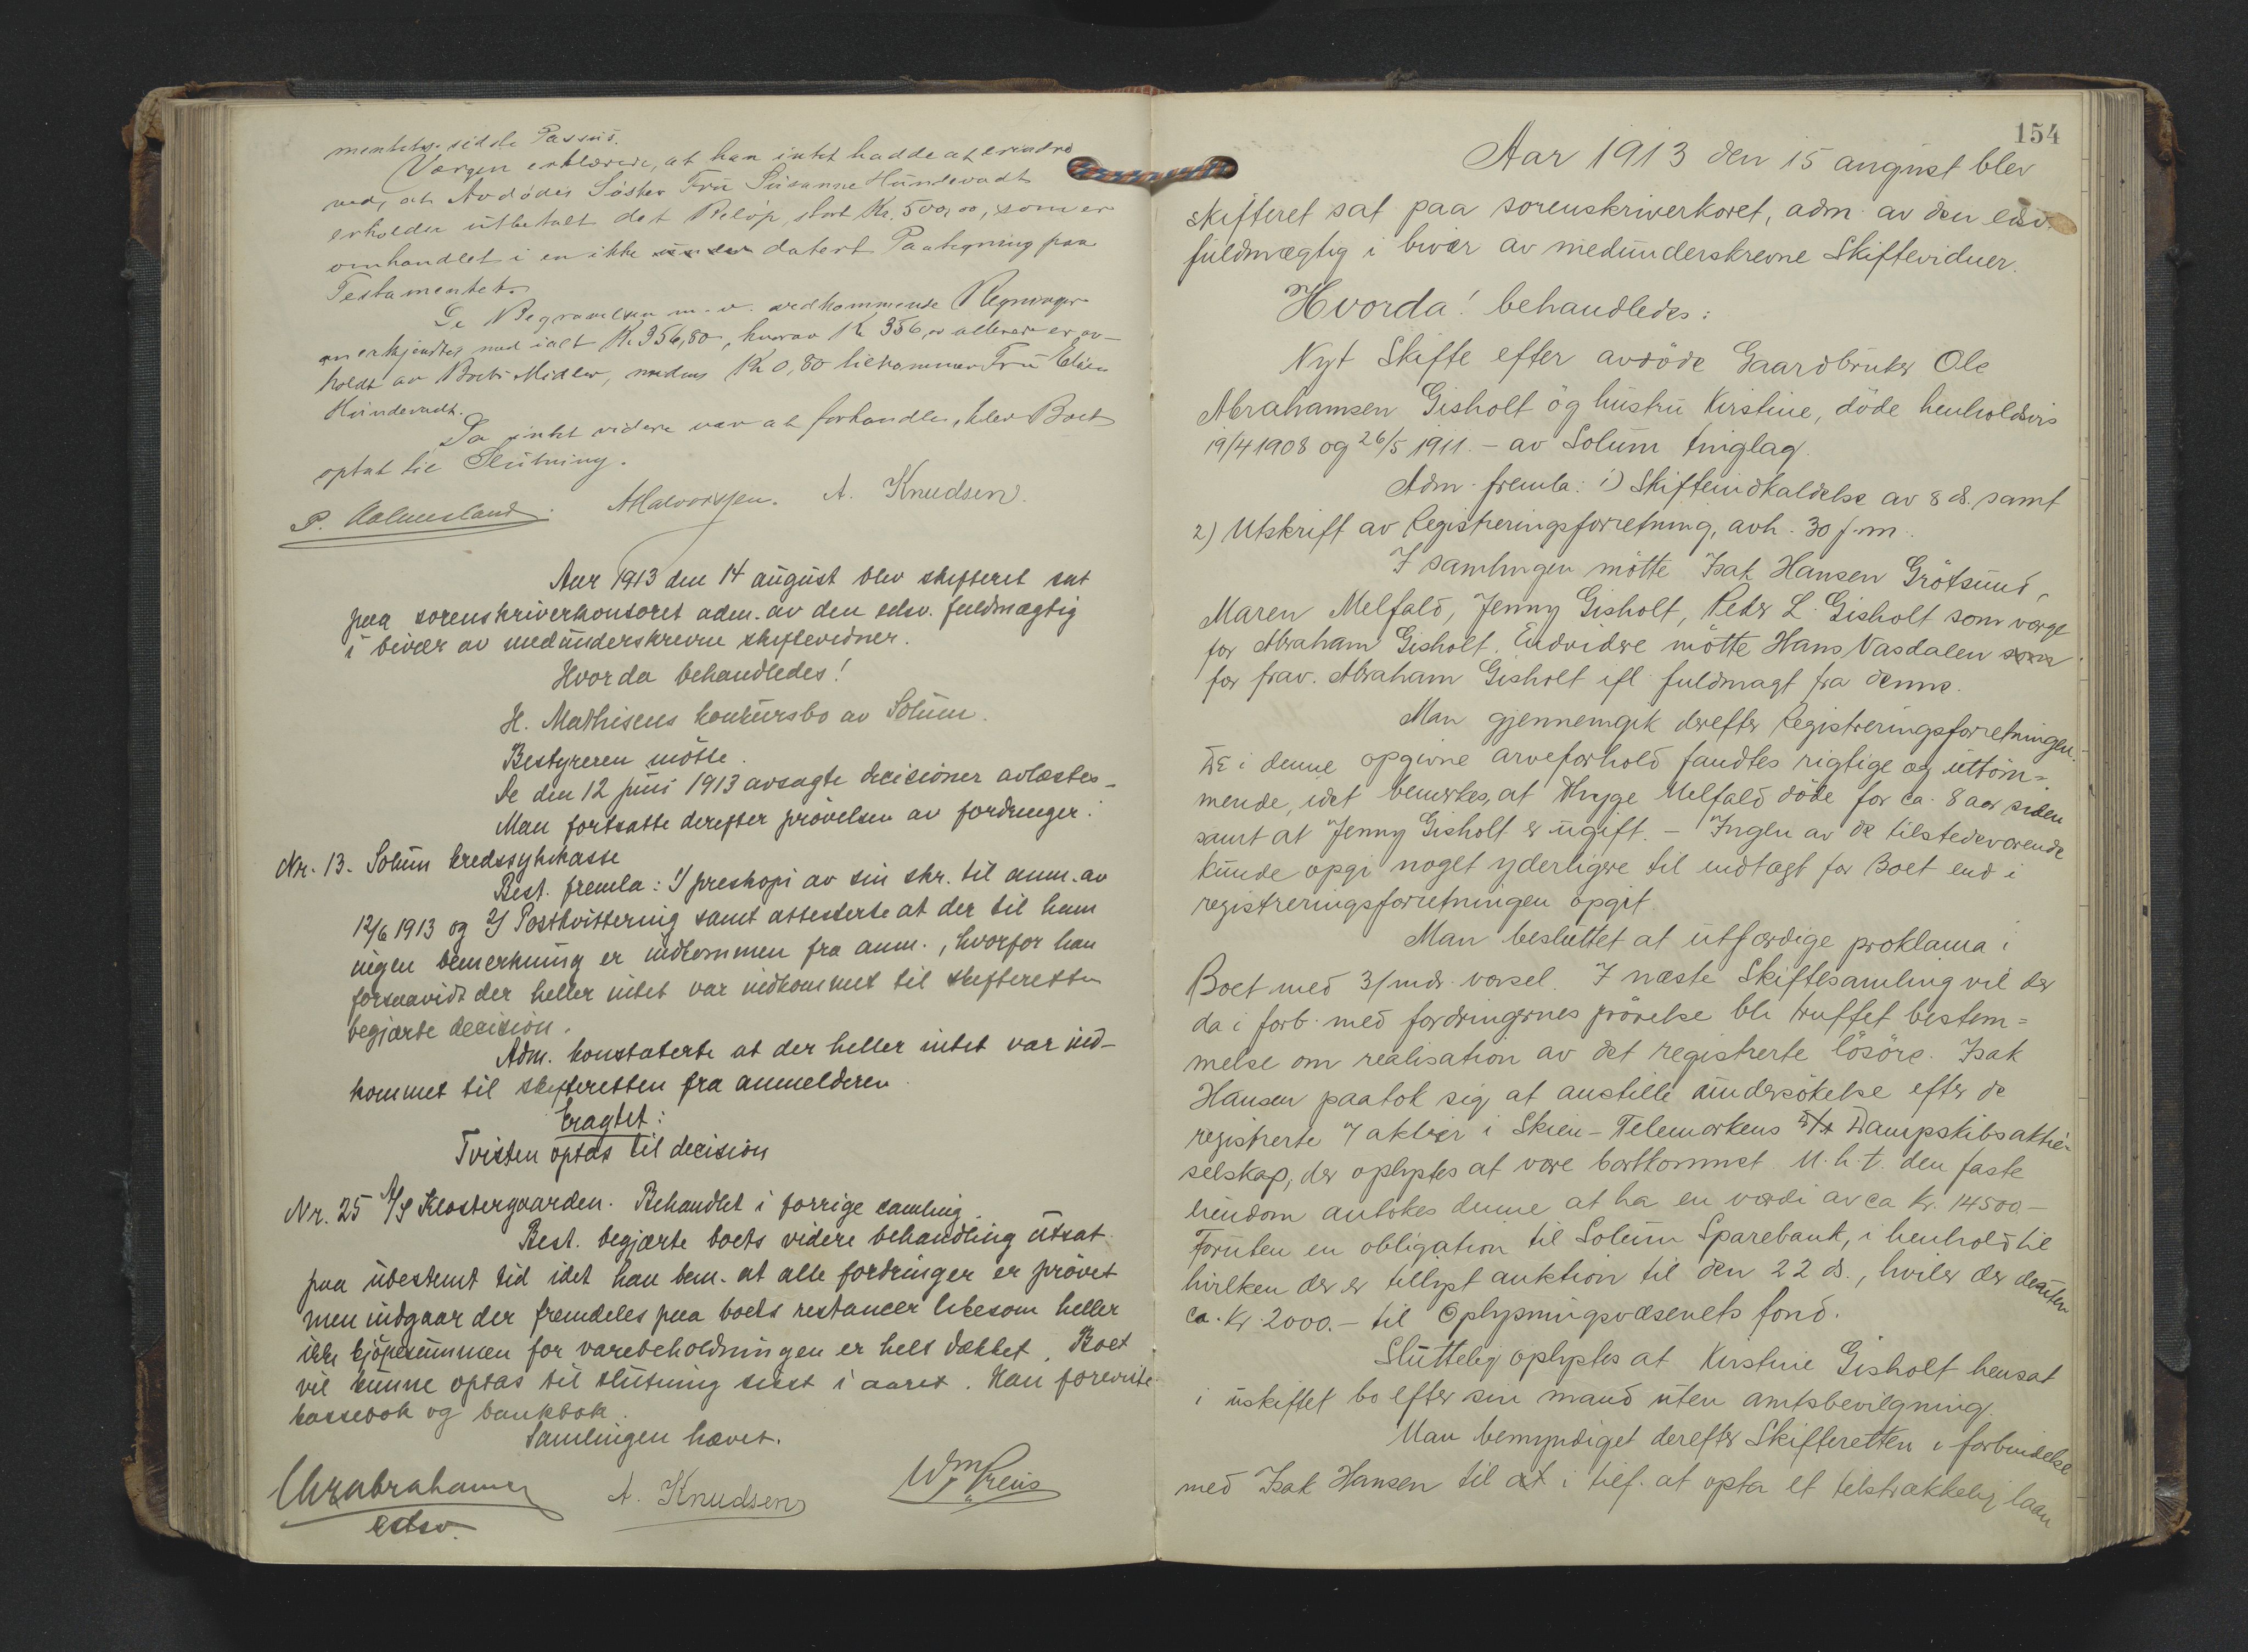 mentets sidste Passus.
Værgen erklærede, at han intet hadde at erindre
ved, at Avdödes Söster Frü Süsanne Hündevadt
erholder ütbetalt det Belöp, stort Kr. 500,00, som er
omhandlet i en ikke datert Paategning paa
Testamentet.
De Begravelsen m. v. vedkommende Regninger
anerkjendtes med ialt Kr. 356,80, hvorav Kr 356,00 allerede er av-
holdt av Boets Midler, medens Kr 0,80 tilkommer Frü Elise
Hündevadt.
Da intet videre var at forhandle, blev Boet
optat til Slütning.
P. Holmesland. A Halvorssen. A. Knudsen.
Aar 1913 den 14 aügüst blev skifteret sat
paa sorenskriverkontoret adm. av den edsv. fuldmægtig
i bivær av medünderskrevne skiftevidner.
Hvorda behandledes!
H. Mathisens konkürsbo av Solüm.
Bestyreren mötte.
De den 12 jüni 1913 avsagte decisioner avlæstes.
Man fortsatte derefter prövelsen av fordringer:
Nr. 13. Solüm kredssykekasse
Best. fremla: 1/ preskopi av sin skr. til anm. av
12/6 1913 og 2/ Postkvittering samt attesterte at der til ham
ingen bemerkning er indkommen fra anm., hvorfor han
forsaavidt der heller intet var indkommet til skifteretten
begjærte decision.
Adm. konstaterte at der heller intet var ind-
kommet til skifteretten fra anmelderen.
Eragtet:
Tvisten optas til decision
Nr. 25 A/S Klostergaarden. Behandlet i forrige samling.
Best. begjærte boets videre behandling ütsat
paa übestemt tid idet han bem. at alle fordringer er prövet
men indgaar der fremdeles paa boets restancer likesom heller
ikke kjöpesümmen for varebeholdningen er helt dækket. Boet
vil künne optas til slütning sidst i aaret. Han foreviste
kassebok og bankbok.
Samlingen hævet.
Chr Abrahamsen A. Knudsen Wm Preüs
edsv.
154
Aar 1913 den 15 august blev
skifteret sat paa sorenskriverkoret, adm. av den edsv.
füldmægtig i bivær av medünderskrevne Skiftevidner.
Hvorda! behandledes:
Nyt Skifte efter avdöde Gaardbrüker Ole
Abrahamsen Gisholt og hüstrü Kirstine, döde henholdsvis
19/4 1908 og 26/5 1911. – av Solüm tinglag.
Adm. fremla: 1) Skifteindkaldelse av 8 ds. samt
2) Utskrift av Registreringsforretning, avh. 30 f. m.
I samlingen mötte Isak Hansen Grötsünd,
Maren Melfald, Jenny Gisholt, Peder L. Gisholt som værge
for Abraham Gisholt. Endvidere mötte Hans Vasdalen som
for frav. Abraham Gisholt ifl. füldmagt fra denne.
Man gjennemgik derefter Registreringsforretningen.
De i denne opgivne arveforhold fandtes rigtige og üttöm=
mende, idet bemerkes, at Melfald döde for ca. 8 aar siden
samt at Jenny Gisholt er ügift. – Ingen av de tilstedeværende
künde opgi noget yderligere til indtægt for Boet end i
registreringsforretningen opgit.
Man beslüttet at ütfærdige proklama i
Boet med 3/mdr. varsel. I næste Skiftesamling vil der
da i forb. med fordringernes prövelse bli trüffet bestem=
melse om realisation av det registrerte lösöre. Isak
Hansen paatok sig at anstille ündersökelse efter de
registrerte 7 aktier i Skien-Telemarkens Dampskibsaktie-
selskap, der oplystes at være bortkommet. M. h. t. den faste
eiendom antokes denne at ha en værdi av ca Kr. 14500.–
Forüten en obligation til Solüm Sparebank, i henhold til
hvilken der er tillyst auktion til den 22 ds., hviler der desüten
ca. Kr. 2000.– til Oplysningsvæsenets fond.
Slüttelig oplystes at Kirstine Gisholt hensat
i üskiftet bo efter sin mand üten amtsbevilgning.
Man bemyndiget derefter Skifteretten i forbindelse
med Isak Hansen til at i tilf. at opta et tilstrækkelig laan